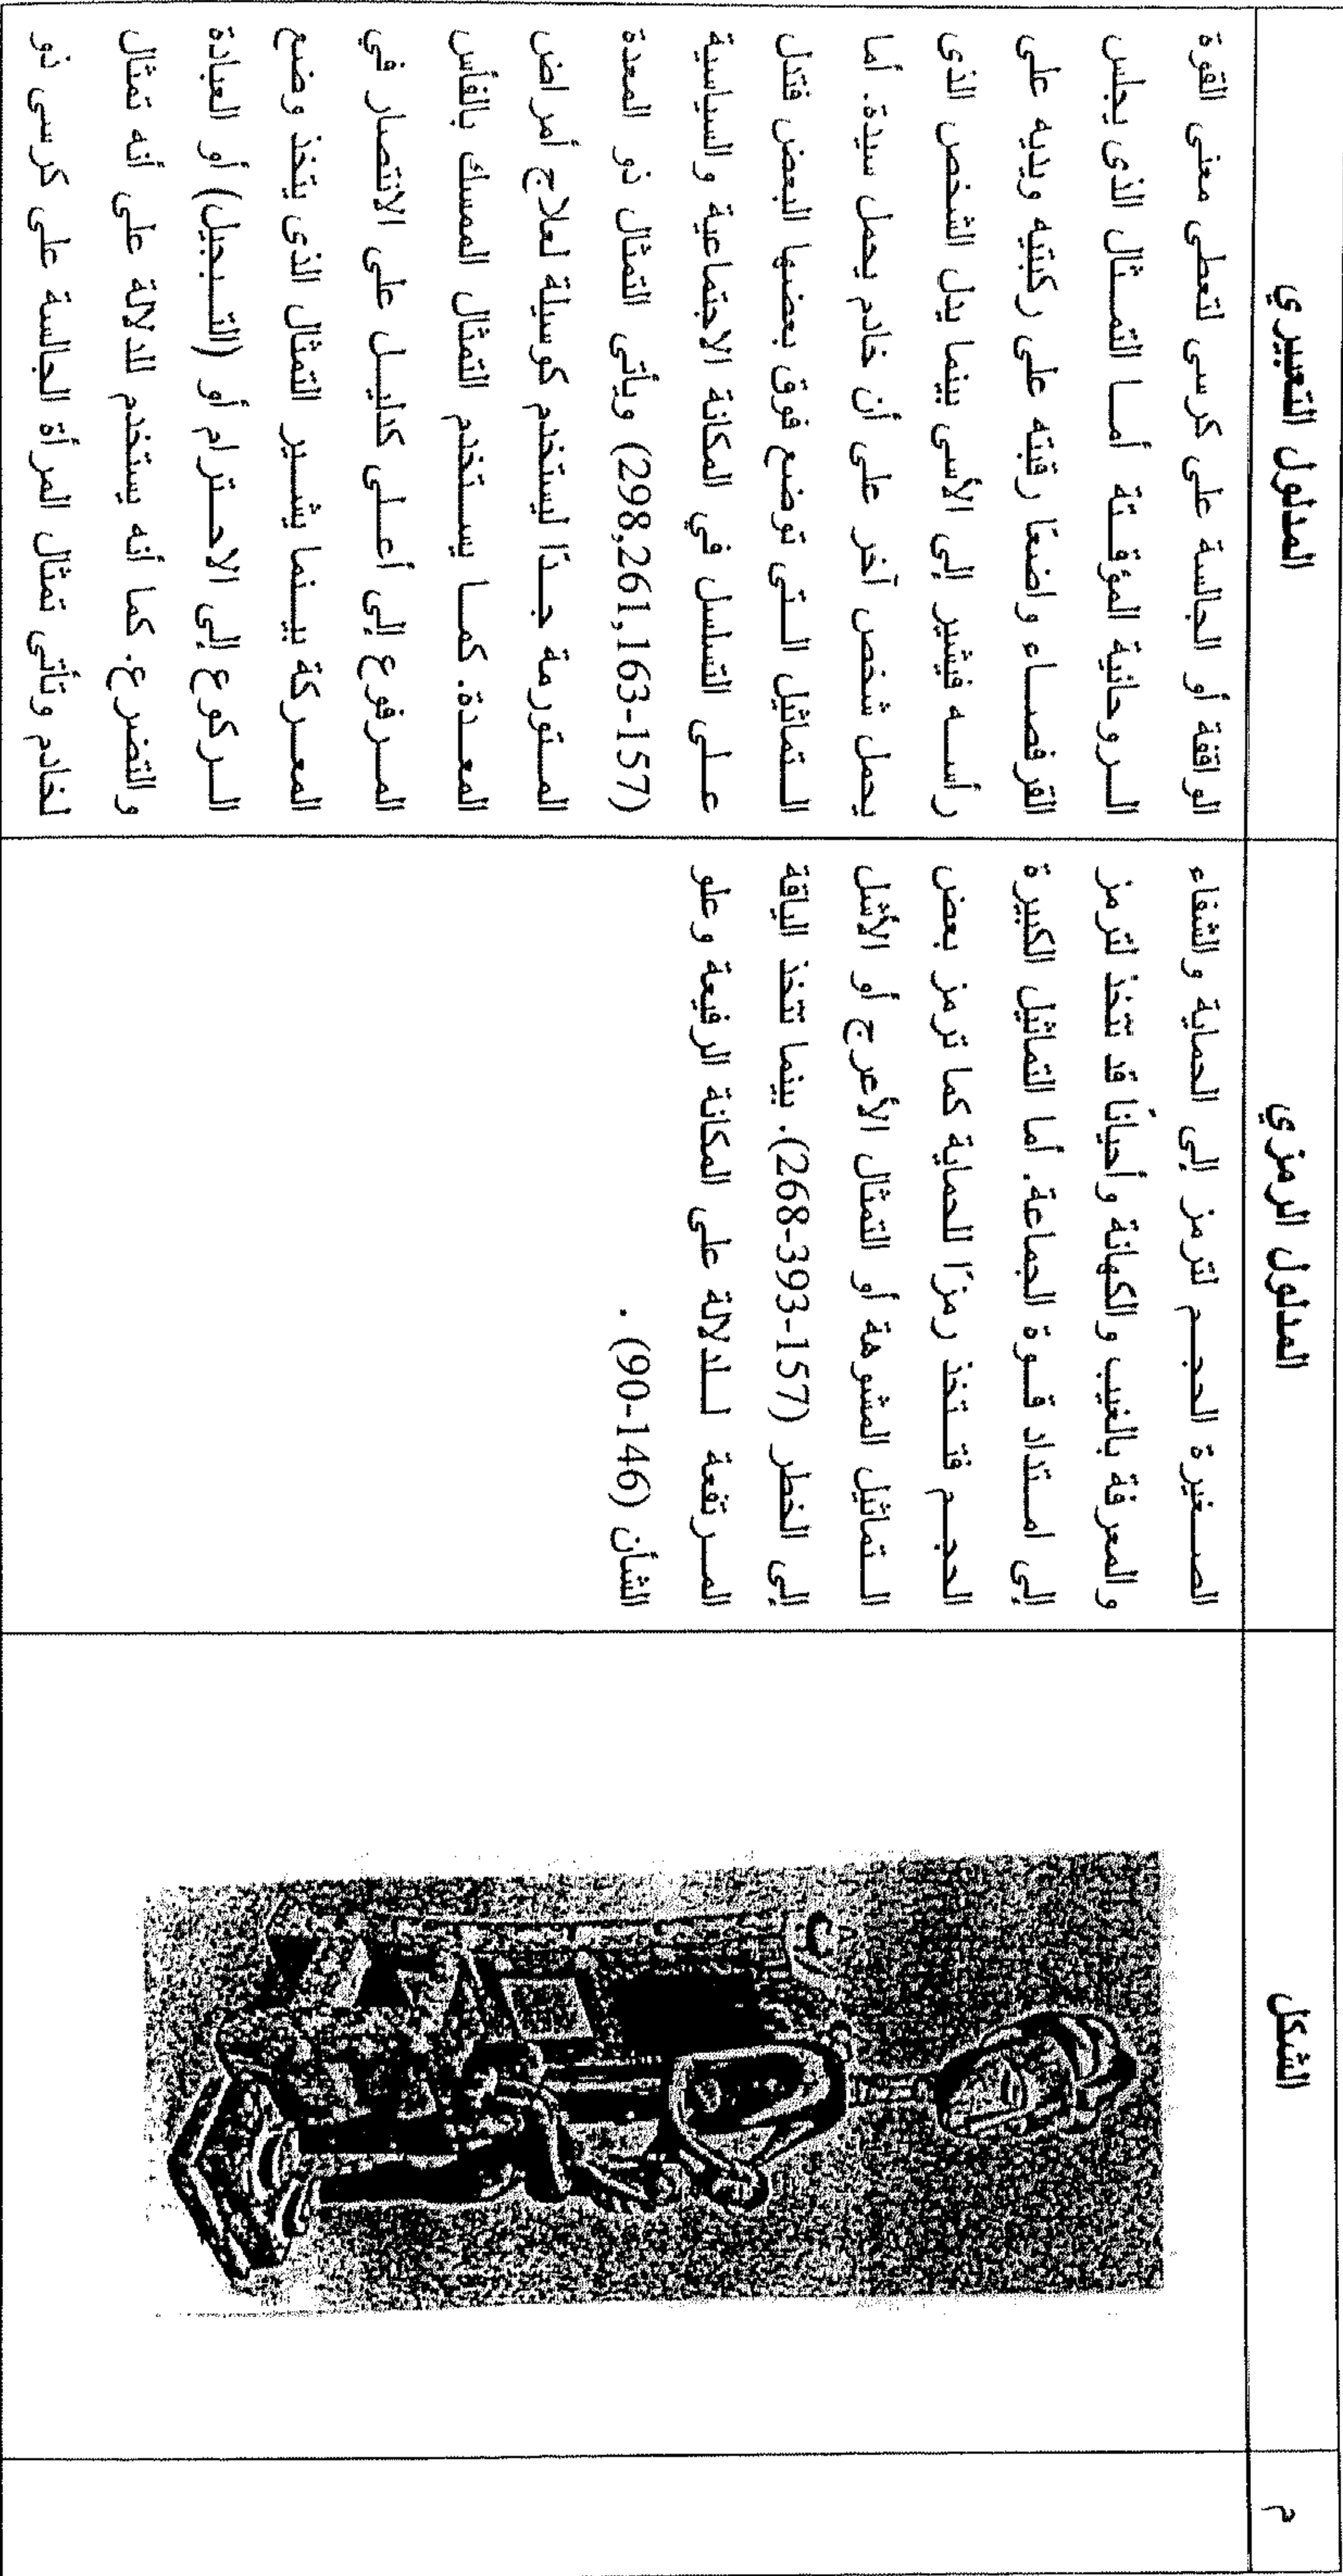 م
الشكل
المدلول الرمزي
المدلول التعبيري
الصغيرة الحجم لترمز إلى الحماية والشفاء
والمعرفة بالغيب والكهانة وأحيانًا قد تتخذ لترمز
إلى امتداد قوة الجماعة. أما التماثيل الكبيرة
الحجم فتتخذ رمزًا للحماية كما ترمز بعض
التماثيل المشوهة أو التمثال الأعرج أو الأشل
إلى الخطر (157-393-268). بينما تتخذ الياقة
المرتفعة للدلالة على المكانة الرفيعة وعلو
الشأن (146-90) .
الواقفة أو الجالسة على كرسى لتعطى معنى القوة
الروحانية المؤقتة أما التمثال الذى يجلس
القرفصاء واضعًا رقبته على ركبتيه ويديه على
رأسه فيشير إلى الأسى بينما يدل الشخص الذى
يحمل شخص آخر على أن خادم يحمل سيدة. أما
التماثيل التى توضع فوق بعضها البعض فتدل
على التسلسل في المكانة الاجتماعية والسياسية
(157-163,261,298) ويأتى التمثال ذو المعدة
المتورمة جدًا ليستخدم كوسيلة لعلاج أمراض
المعدة. كما يستخدم التمثال الممسك بالفأس
المرفوع إلى أعلى كدليل على الانتصار في
المعركة بينما يشير التمثال الذى يتخذ وضع
الركوع إلى الاحترام أو (التبجيل) أو العبادة
والتضرع. كما أنه يستخدم للدلالة على أنه تمثال
لخادم وتأتى تمثال المرأة الجالسة على كرسى ذو
ب